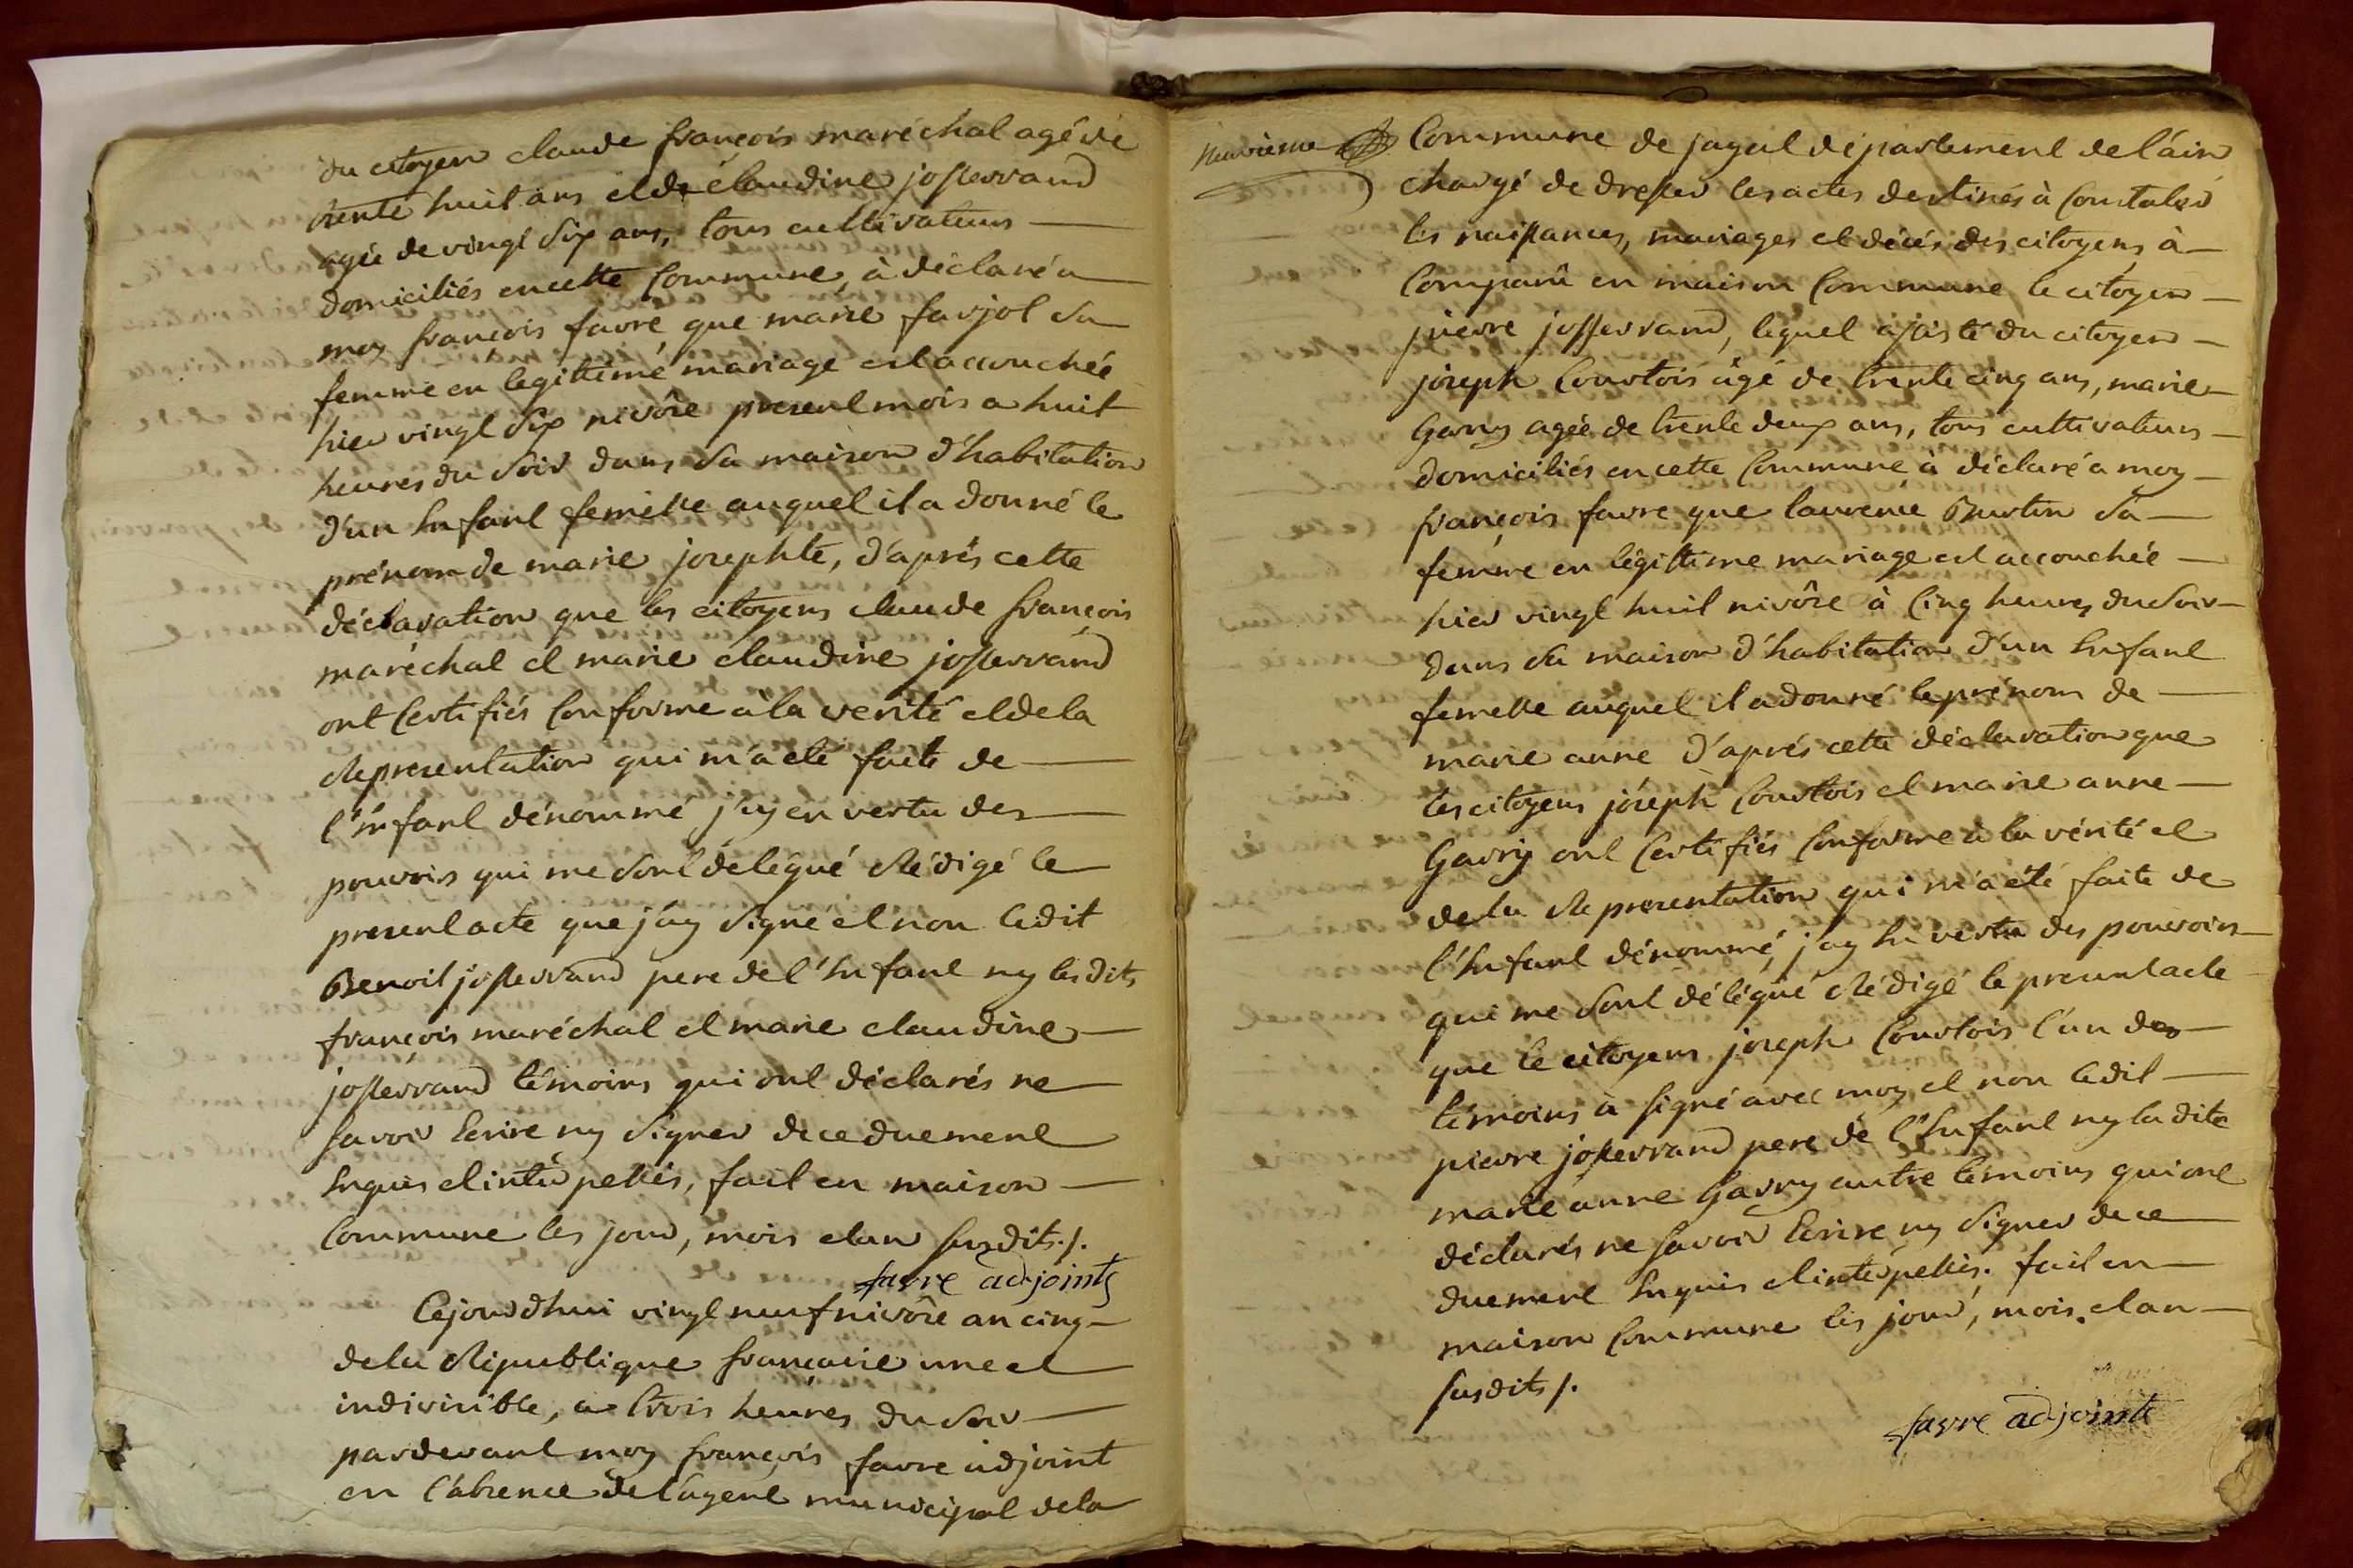 du citoyen claude françois maréchal agé de
trente huit ans et de claudine josserrand
agée de vingt six ans, tous cultivateurs
domiciliés en cette Commune, à déclaré a
moy françois favre que marie farjot sa
femme en legittime mariage est accouchée
hier vingt six nivôse present mois a huit
heures du soir dans sa maison d'habitation
d'un Enfant femelle auquel il a donné le
prénom de marie josephte, d'aprés cette
déclaration que les citoyens claude françois
maréchal et marie claudine josserrand
ont Certifiés Conforme à la verité et de la
Representation qui m'a eté faite de
l'Enfant dénommé j'ay en vertu des
pouvoirs qui me sont délégué Rédigé le
present acte que j'ay signé et non Ledit
Benoit josserrand pere de l'Enfant ny lesdits
françois maréchal et marie claudine
josserrand témoins qui ont déclarés ne
savoir Ecrire ny signer de ce duement
Enquis et interpellés, fait en maison
Commune les jour, mois et an susdits ./.
favre adjoint
Cejourd'hui vingt neuf nivôse an cinq
de la République française une et
indivisible, a trois heures du soir
pardevant moy françois favre adjoint
en l'absence de l'agent municipal de la
Neuvieme
Commune de jayat département de l'ain
chargé de dresser les actes destinés à Constater
les naissances, mariages et décés des citoyens à
Comparû en maison Commune le citoyen
pierre josserrand, lequel assisté du citoyen
joseph Courtois âgé de trente cinq ans, marie
Gavry agée de trente deux ans, tous cultivateurs
domiciliés en cette Commune à déclaré a moy
françois favre que laurence Burtin sa
femme en légittime mariage est accouchée
hier vingt huit nivôse à Cinq heures du soir
dans sa maison d'habitation d'un Enfant
femelle auquel il a donné le prénom de
marie anne d'aprés cette déclaration que
les citoyens joseph Courtois et marie anne
Gavry ont Certifiés Conforme à la vérité et
de la Representation qui m'a été faite de
l'Enfant dénommé, j'ay En vertu des pouvoirs
qui me sont délégué Rédigé le present acte
que le citoyens joseph Courtois l'un des
témoins à signé avec moy et non Ledit
pierre josserrand pere de l'Enfant ny la dite
marie anne Gavry autre témoins qui ont
déclarés ne savoir Ecrire ny signer de ce
duement Enquis et interpellés. fait en
maison Commune les jour, mois et an
susdits ./.
favre adjoint